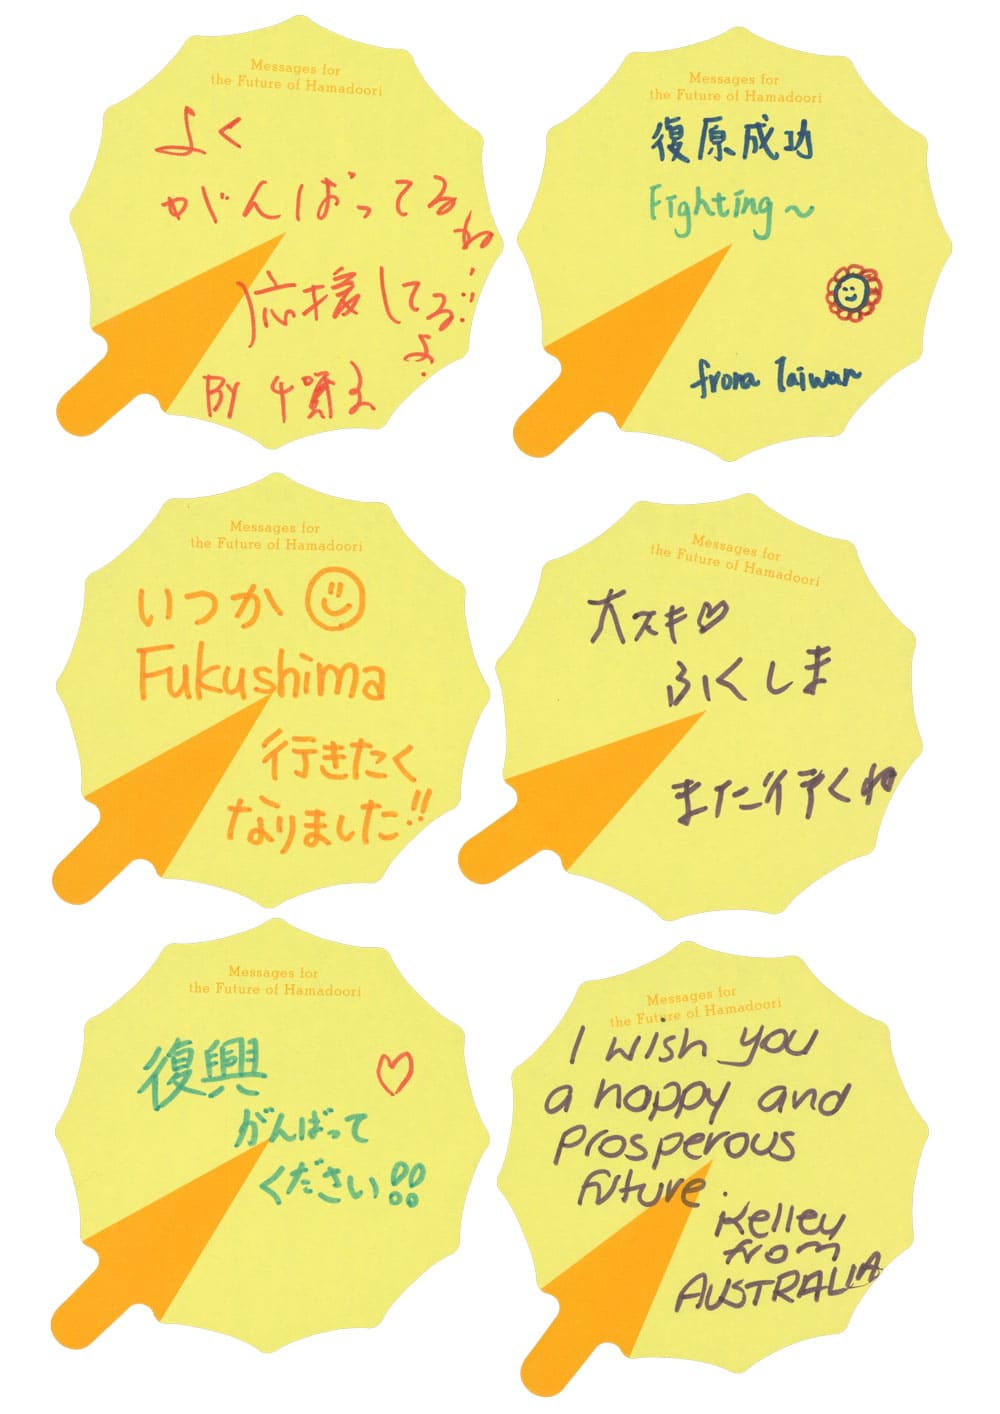 Messages for
the Future of Hamadoori
よく
がんばってるね
応援してるよ!!
BY
Messages for
the Future of Hamadoori
復原成功
Fighting~
from Taiwan
Messages for
the Future of Hamadoori
いつか
Fukushima
行きたく
なりました!!
Messages for
the Future of Hamadoori
大スキ♡
ふくしま
また行くね
Messages for
the Future of Hamadoori
復興
がんばって
ください!!
Messages for
the Future of Hamadoori
I wish you
a happy and
Prosperous
future.
Kelley
from
AUSTRALIA